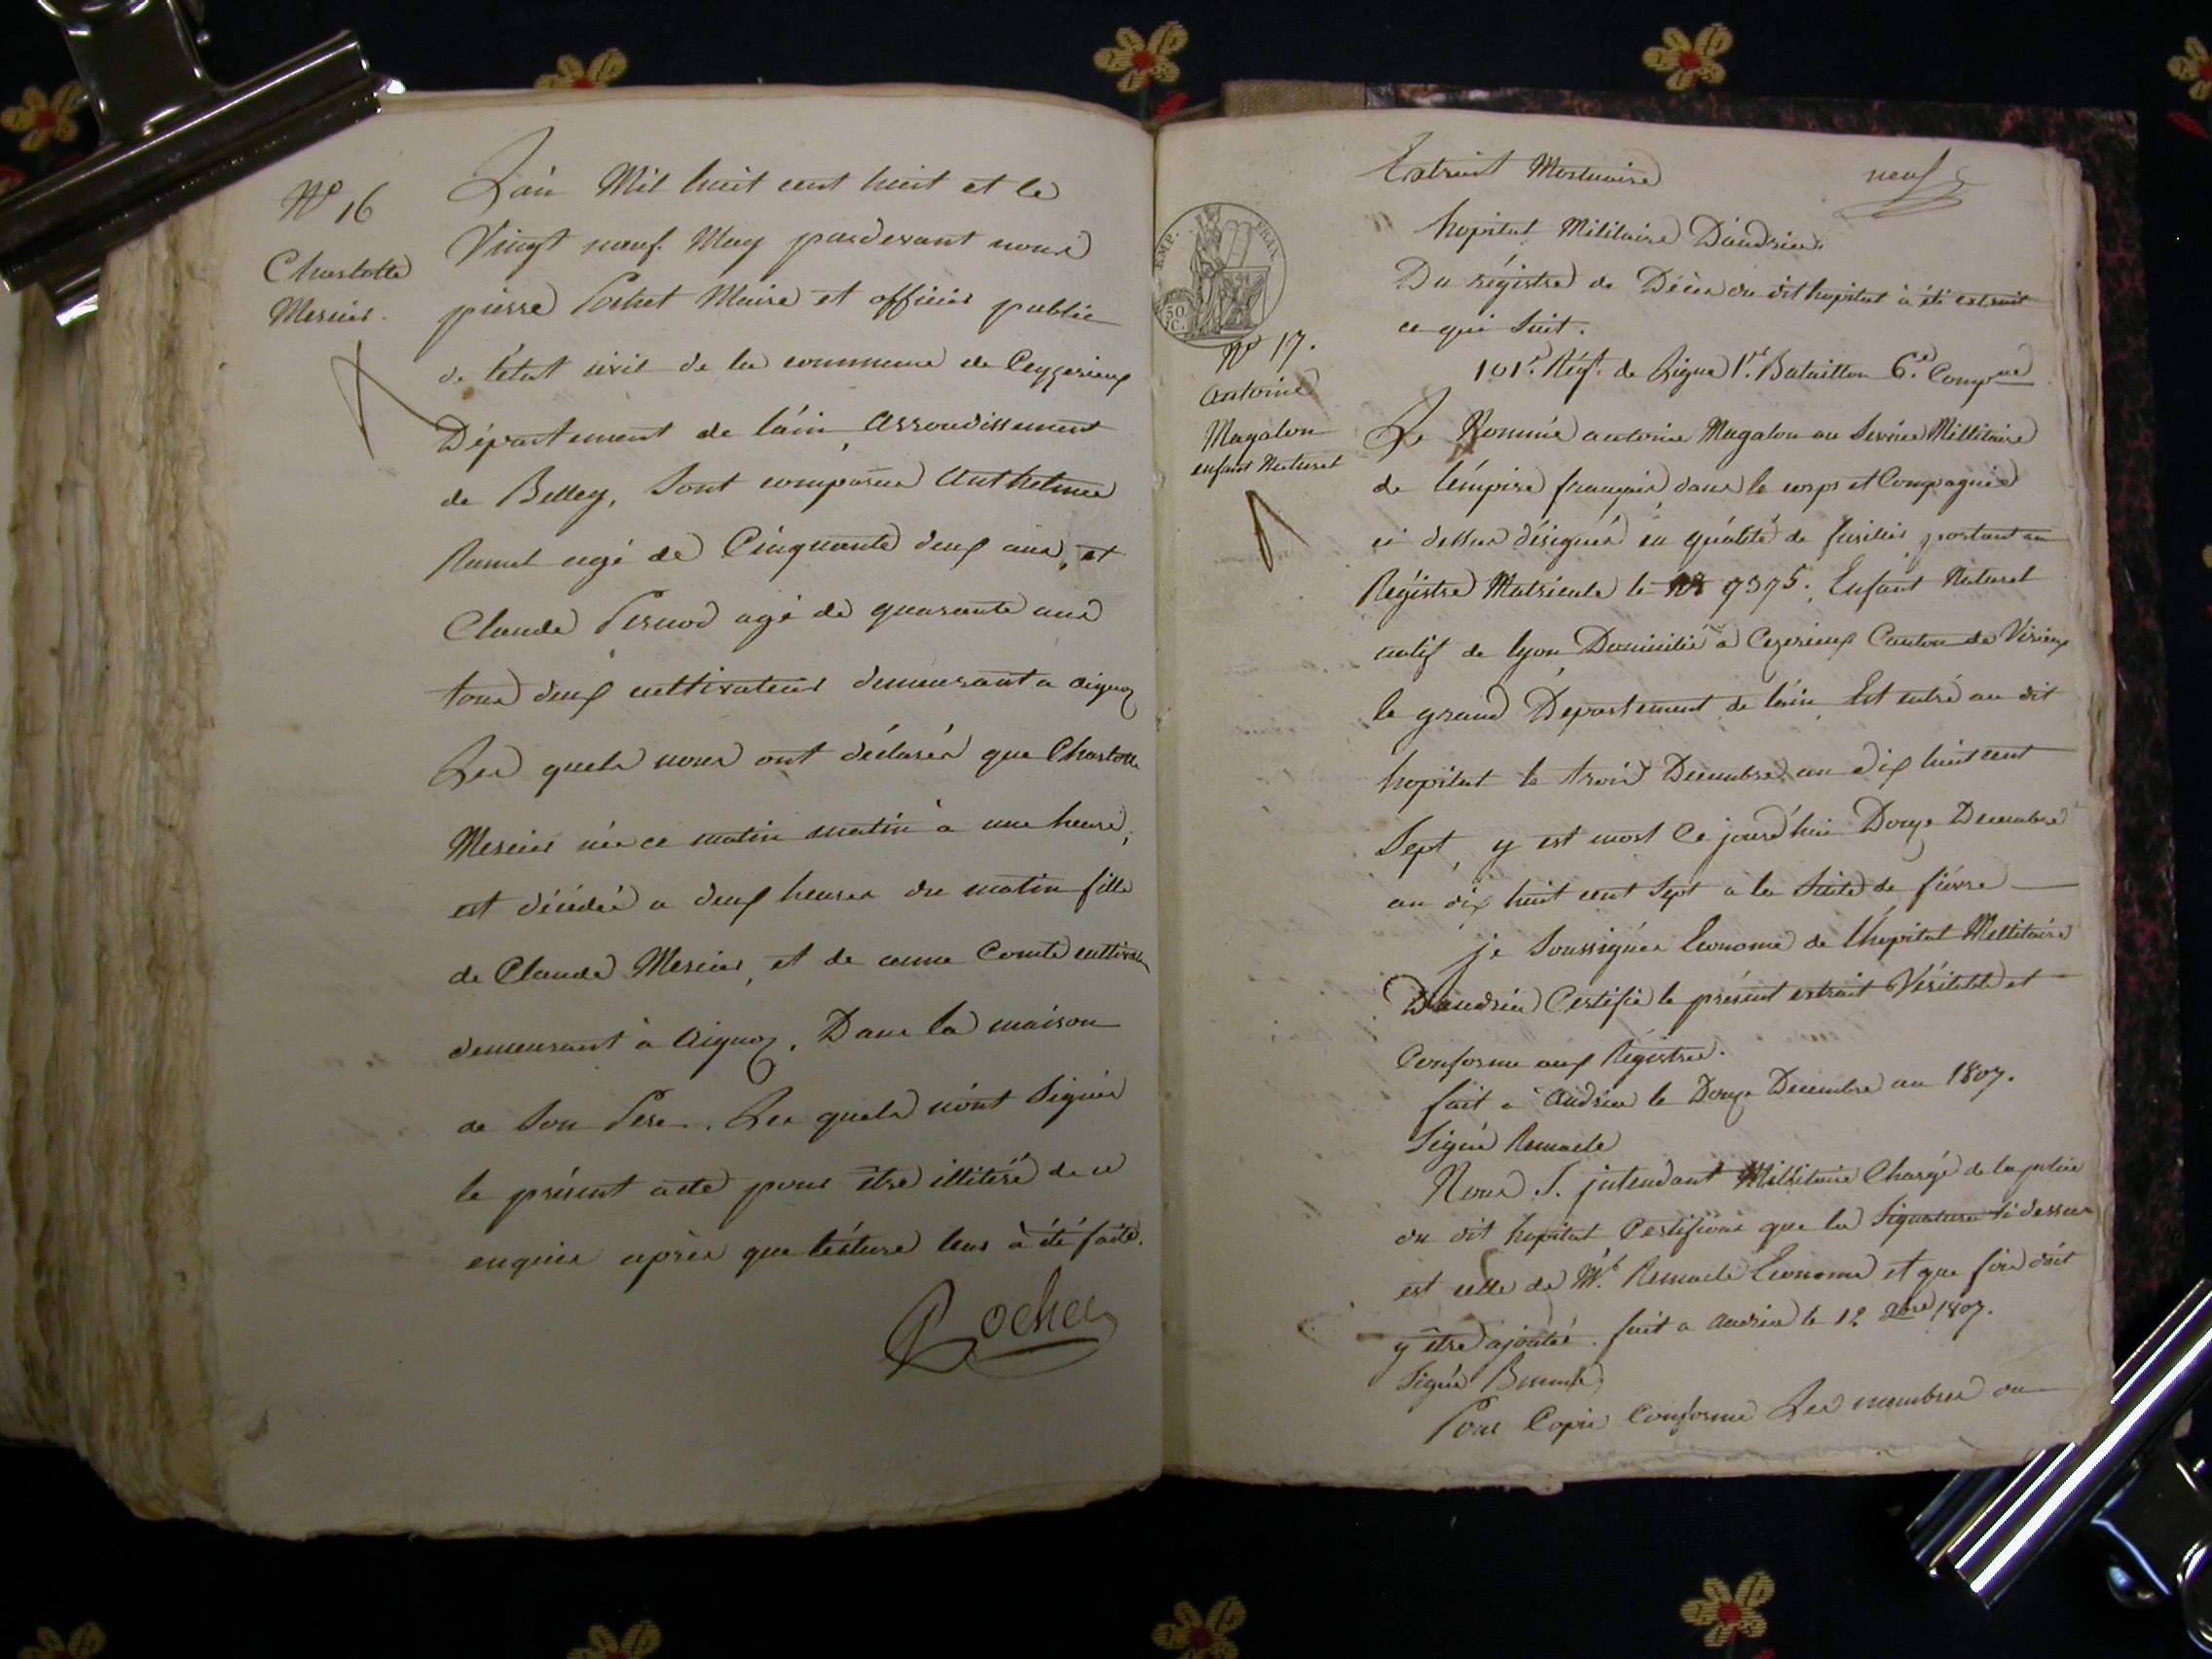 N° 16
Charlotte
Mercier.
L'ain Mil huit cent huit et le
Vingt neuf May pardevant nous
pierre Pochet Maire et officier public
de l'état civil de la commune de Ceyzerieux
Département de l'ain, Arrondissement
de Belley, Sont comparus Anthelme
Ramel agé de Cinquante deux ans, et
Claude Pernod agé de quarante ans
tous deux cultivateurs demeurant a aignoz
Les quels nous ont déclarés que Charlotte
Mercier née ce matin matin à une heure,
est décédée a deux heures du matin fille
de Claude Mercier, et de anne Comte
demeurant à Aignoz. Dans la maison
de Son Pere. Les quels n'ont Signés
le présent acte pour être illitéré de ce
enquis après que lécture leur à été faite.
Pochet
EMP. FRAN.
50
C.
N° 17.
Antoine
Magalon
enfant Naturel
Extrait Mortuaire neuf
hopital Militaire D'andria.
Du régistre de Décès du dit hopital à été extrait
ce qui Suit.
101.e Régt. de Ligne 1.er Bataillon 6.e Compnie
Le Nommé antoine Magalon au Service Millitaire
de l'émpire français dans le corps et Compagnie
ci dessus désignés en quálité de fusilier, portant au
Régistre Matricule le N° 9395. Enfant Naturel
natif de lyon Domicilié a Cezerieux Canton de Virieux
le grand Département de l'ain Est entré au dit
hopital le trois Decembre an dix huit cent
Sept, y est mort Ce jourd'hui Douze Decembre
an dix huit cent Sept a la Suite de fièvre
je Soussignés Econome de l'hopital Millitaire
D'andria Certifie le présent extrait Véritable et
Conforme aux Régistres.
fait a Andria le Douze Decembre an 1807.
Signé Remacle
Nous S. intendant Millitaire Chargé de la police
du dit hopital Certifions que la Signature ci dessus
est celle de Mr. Remacle Econome et que foi doit
y être ajoutée. fait a Andria le 12 Xbre 1807.
Signé
Pour Copie Conforme Les membres du